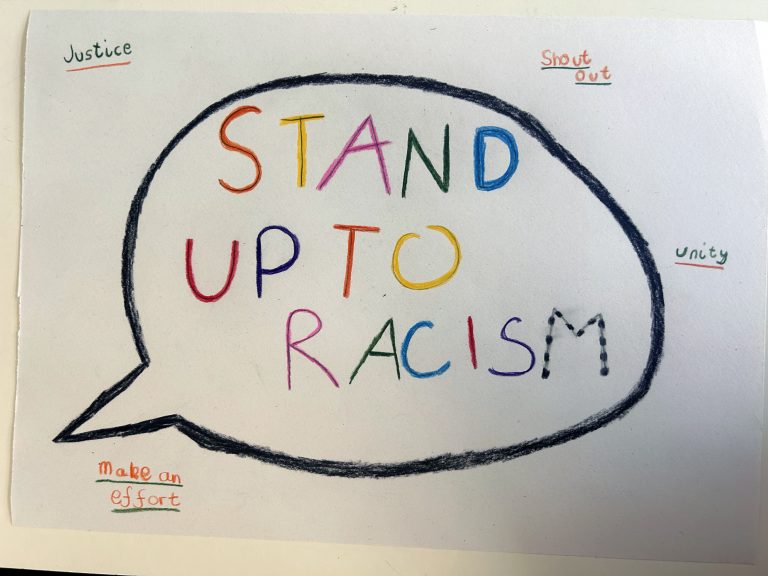 Justice
Shout
out
STAND
UP TO
unity
RACISM
Make an
effort